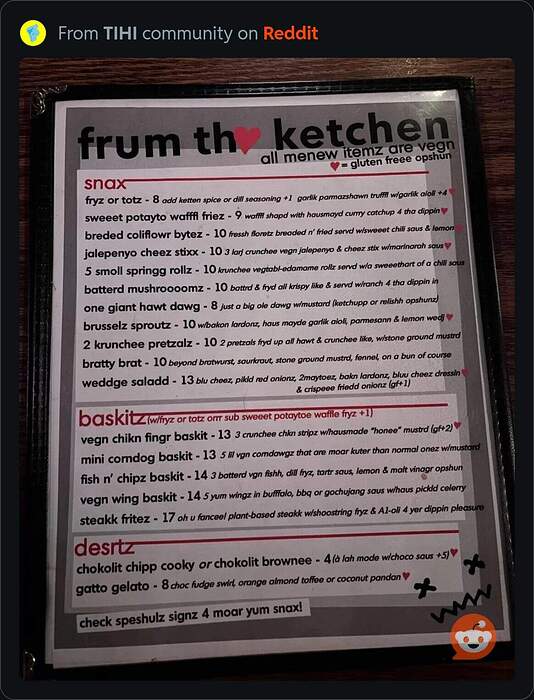 From TIHI community on Reddit
frum th♥ ketchen
all menew itemz are vegn
♥= gluten freee opshun
snax
fryz or totz - 8 add ketten spice or dill seasoning +1 garlik parmazshawn truffll w/garlic aioli +4♥
sweeet potayto wafffl friez - 9 waffll shapd with hausmayd curry catchup 4 tha dippin♥
breded coliflowr bytez - 10 fressh floretz breaded n' fried servd w/sweeet chili saus & lemon♥
jalepenyo cheez stixx - 10 3 larj crunchee vegn jalepenyo & cheez stix w/marinarah saus♥
5 smoll springg rollz - 10 krunchee vegtabl-edamame rollz servd w/a sweeethart of a chili saus
batterd mushroooomz - 10 battrd & fryd all krispy like & servd w/ranch 4 tha dippin in
one giant hawt dawg - 8 just a big ole dawg w/mustard (ketchupp or relishh opshunz)
brusselz sproutz - 10 w/bakon lardonz, haus mayde garlik aioli, parmesann & lemon wedj♥
2 krunchee pretzalz - 10 2 pretzals fryd up all hawt & crunchee like, w/stone ground mustrd
bratty brat - 10 beyond bratwurst, saurkraut, stone ground mustrd, fennel, on a bun of course
weddge saladd - 13 blu cheez, pikld red onionz, 2maytoez, bakn lardonz, bluu cheez dressin♥
& crispeee friedd onionz (gf+1)
baskitz (w/fryz or totz orrr sub sweeet potaytoe waffle fryz +1)
vegn chikn fingr baskit - 13 3 crunchee chkn stripz w/hausmade "honee" mustrd (gf+2)♥
mini corndog baskit - 13 5 lil vgn corndawgz that are moar kuter than normal onez w/mustard
fish n' chipz baskit - 14 3 batterd vgn fishh, dill fryz, tartr saus, lemon & malt vinagr opshun
vegn wing baskit - 14 5 yum wingz in bufffalo, bbq or gochujang saus w/haus pickld celerry
steakk fritez - 17 oh u fanceel plant-based steakk w/shoostring fryz & A1-oli 4 yer dippin pleasure
desrtz
chokolit chipp cooky or chokolit brownee - 4 (à lah mode w/choco saus +5)♥
gatto gelato - 8 choc fudge swirl, orange almond toffee or coconut pandan♥
check speshulz signz 4 moar yum snax!